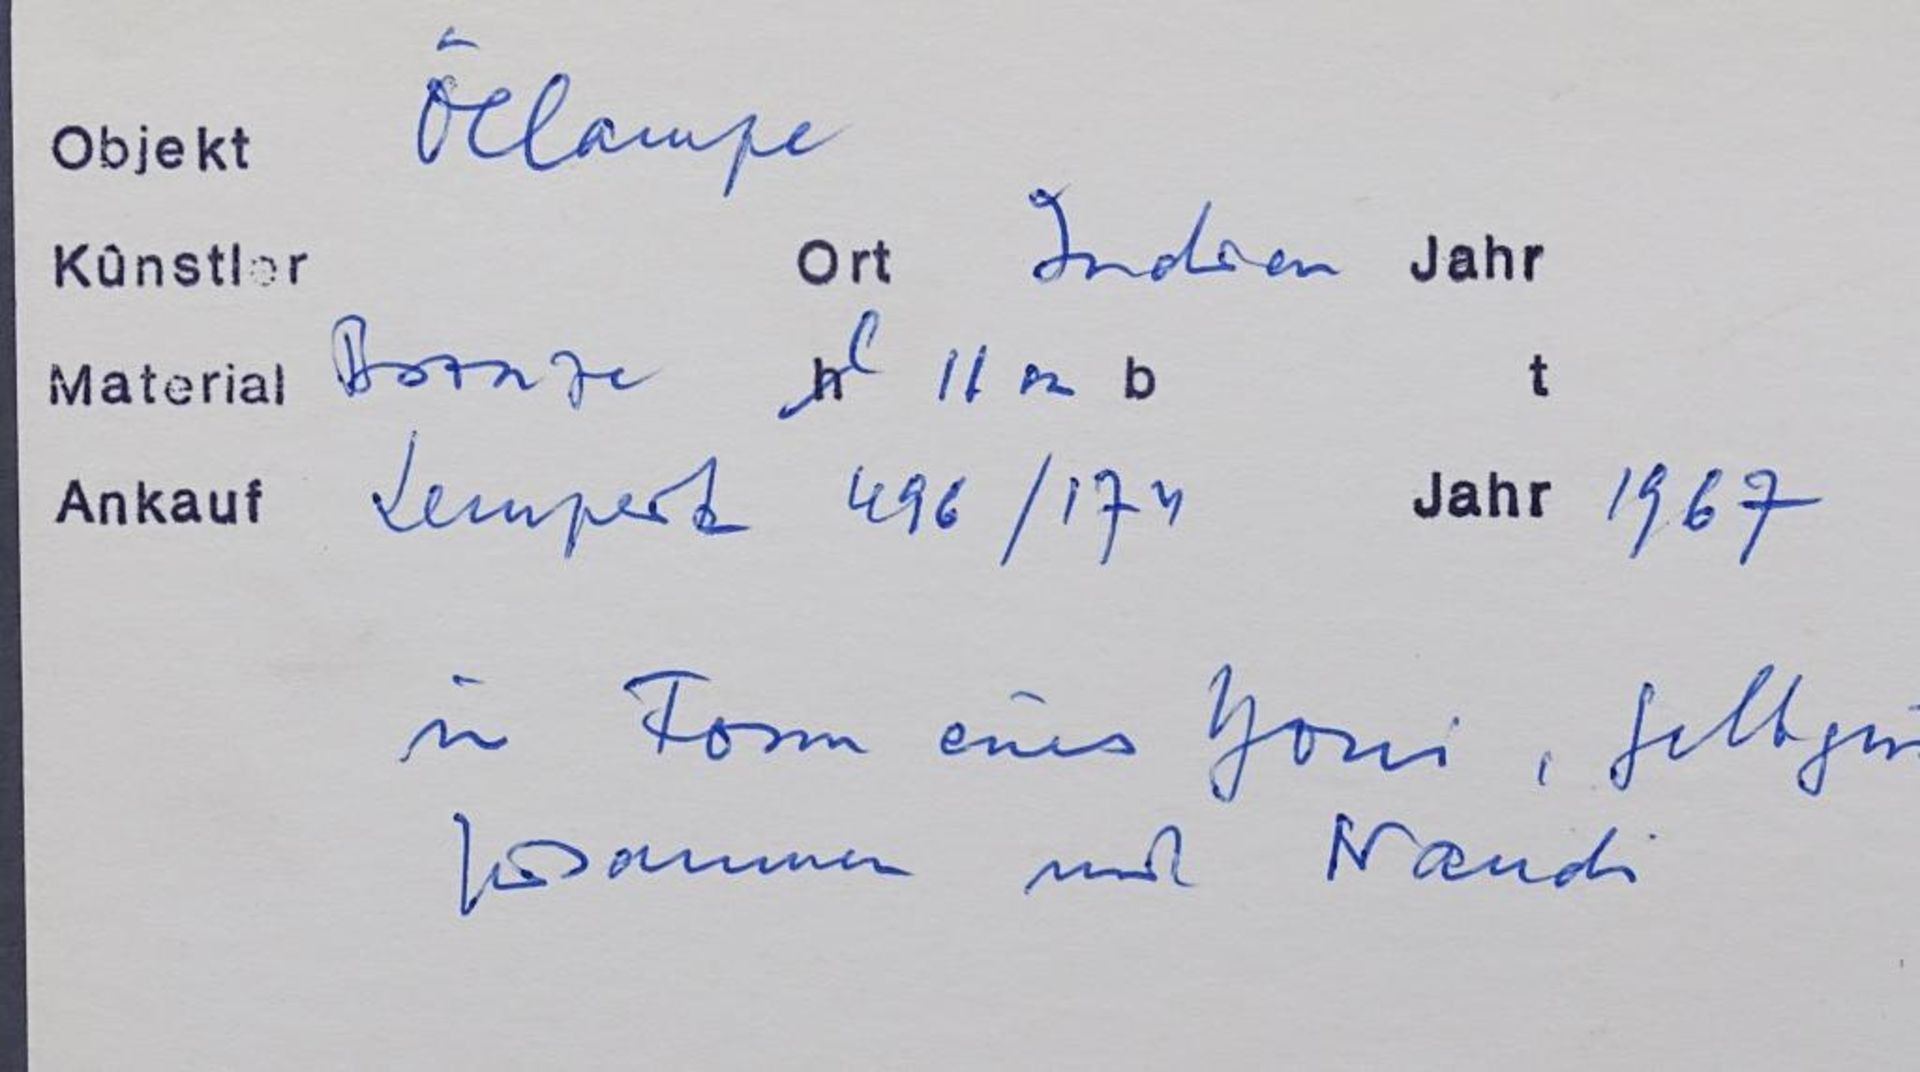 Objekt Öllampe
Künstler Ort Indien Jahr
Material Bronze l 11 cm b t
Ankauf Lempertz 496/174 Jahr 1967
in Form eines Yoni, Gelbgu
zusammen mit Nandi